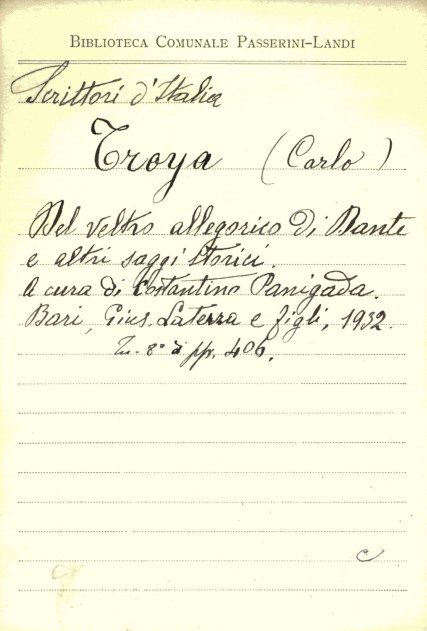 BIBLIOTECA COMUNALE PASSERINI-LANDI
Scrittori d'Italia
Troya (Carlo)
Del veltro allegorico di Dante
e altri saggi storici.
A cura di Costantino Panigada.
Bari, Gius. Laterza e figli, 1932.
In-8° di pp. 406.
c